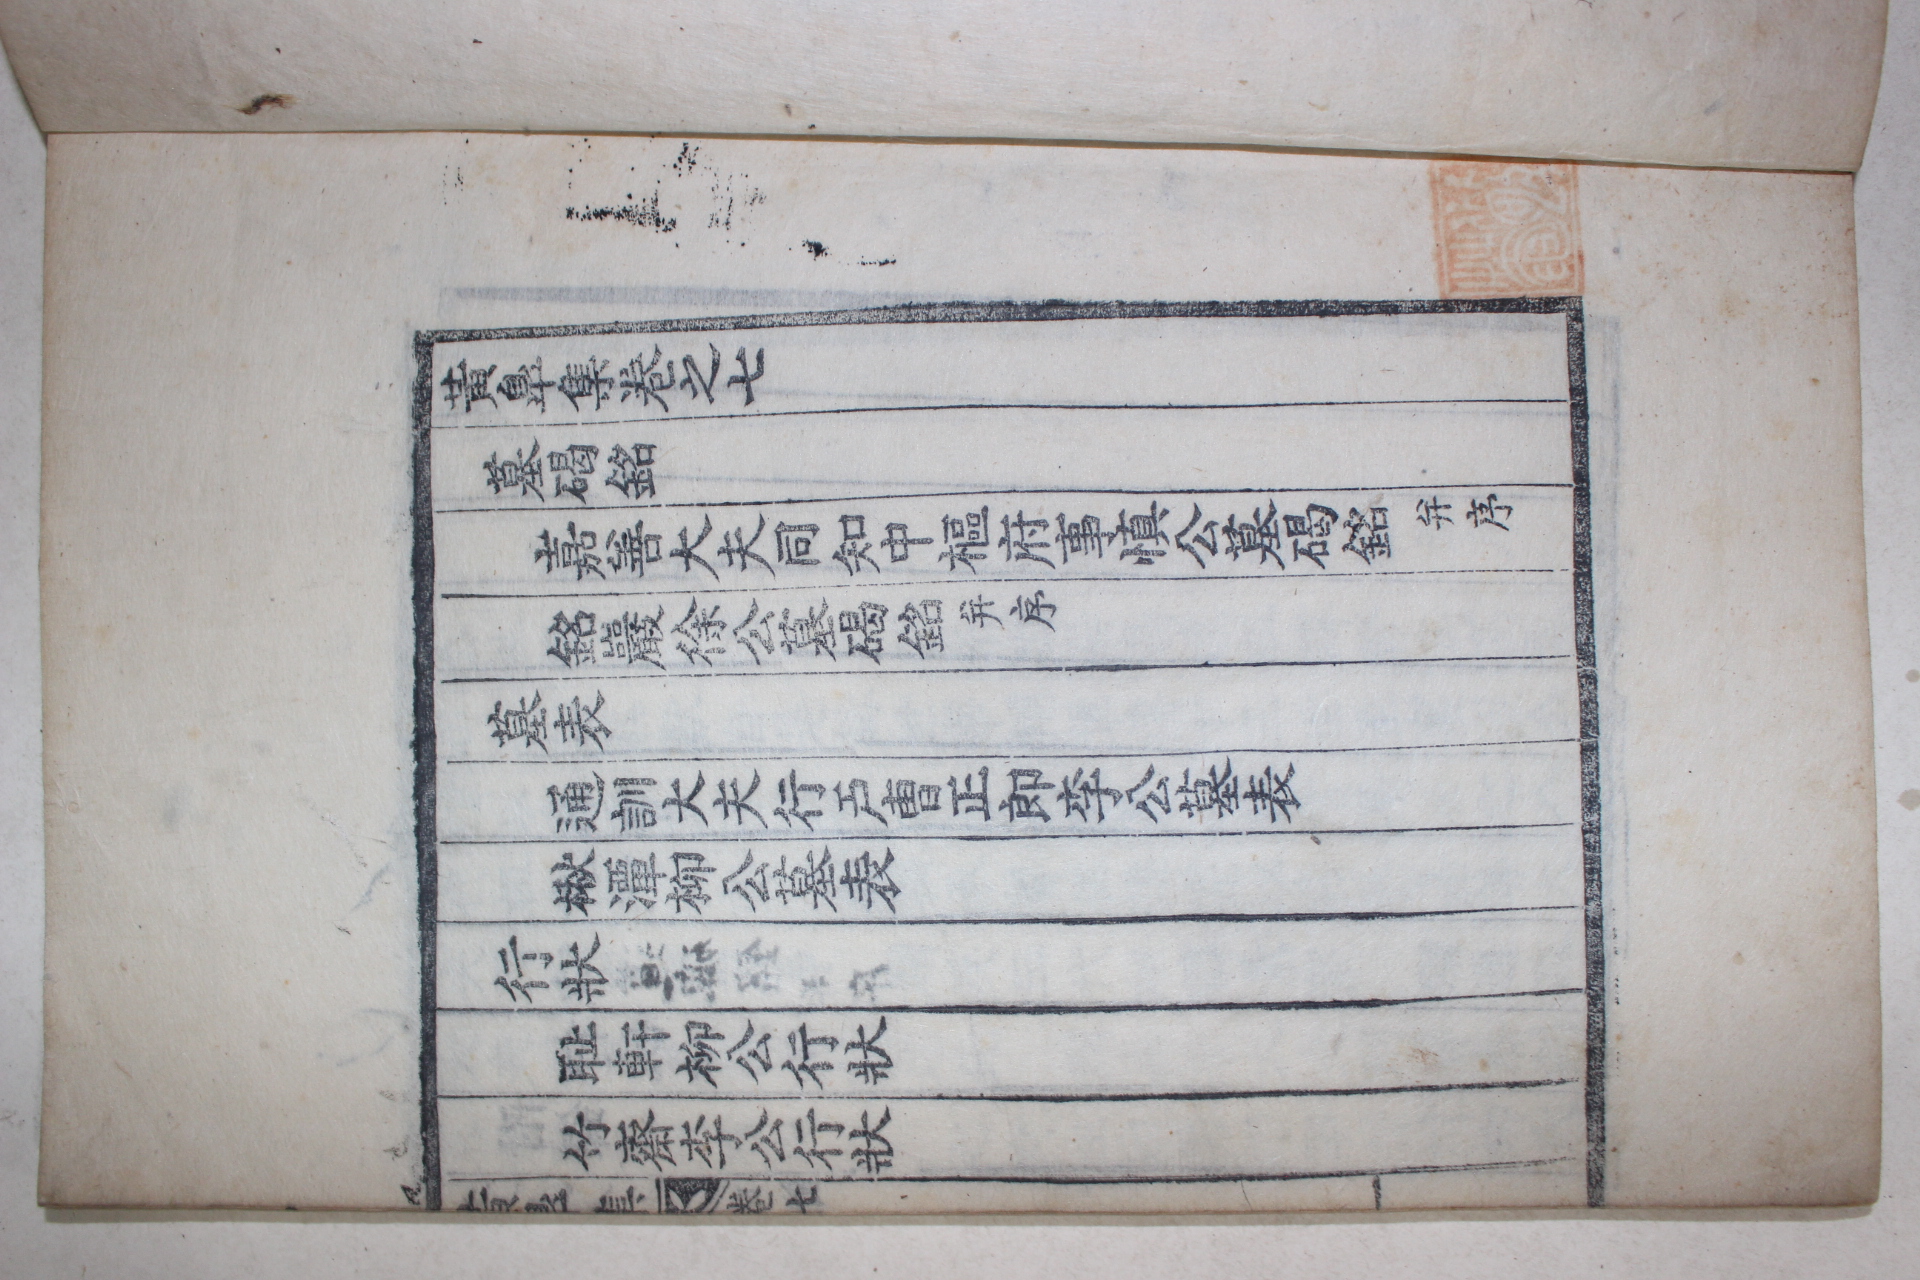 黃皐集卷之七
墓碣銘
嘉善大夫同知中樞府事愼公墓碣銘 幷序
銘巖徐公墓碣銘 幷序
墓表
通訓大夫行戶曹正郎李公墓表
楸潭柳公墓表
行狀
耻軒柳公行狀
竹齋李公行狀
黃皐集 卷七 一